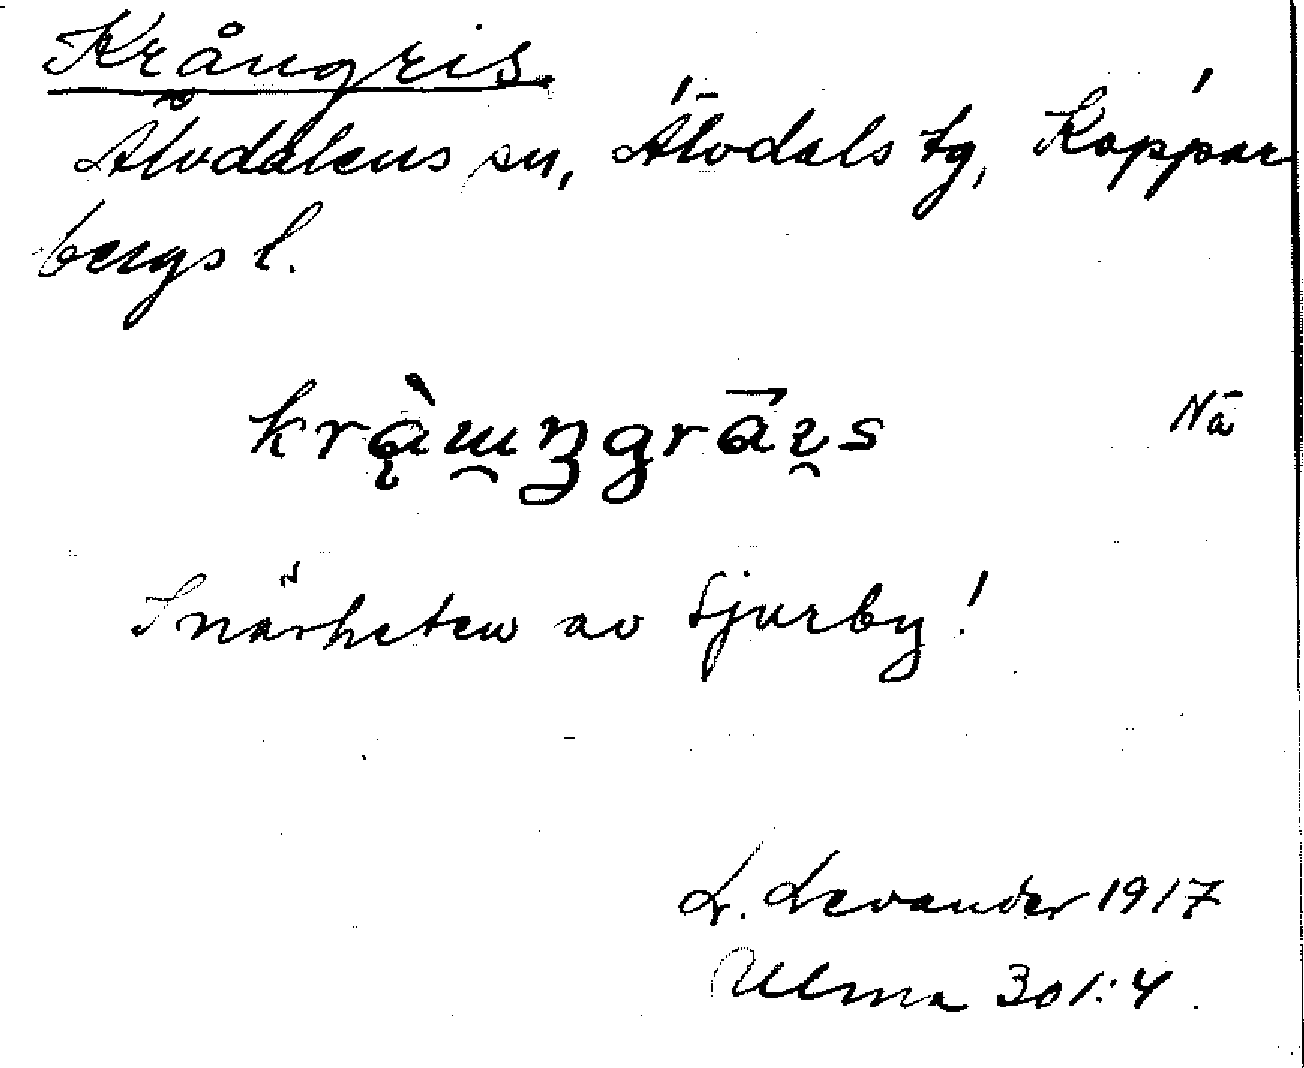 Krångris.
Älvdalens sn, Älvdals tg, Koppar
bergs l.
Nä
I närheten av Sjurby!
L. Levander 1917
Ulma 301:4